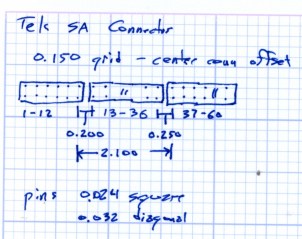 Tek 5A Connector
0.150 grid - center conn offset
1-12 13-36 37-60
0.200 0.250
2.100
pins 0.024 square
0.032 diagonal